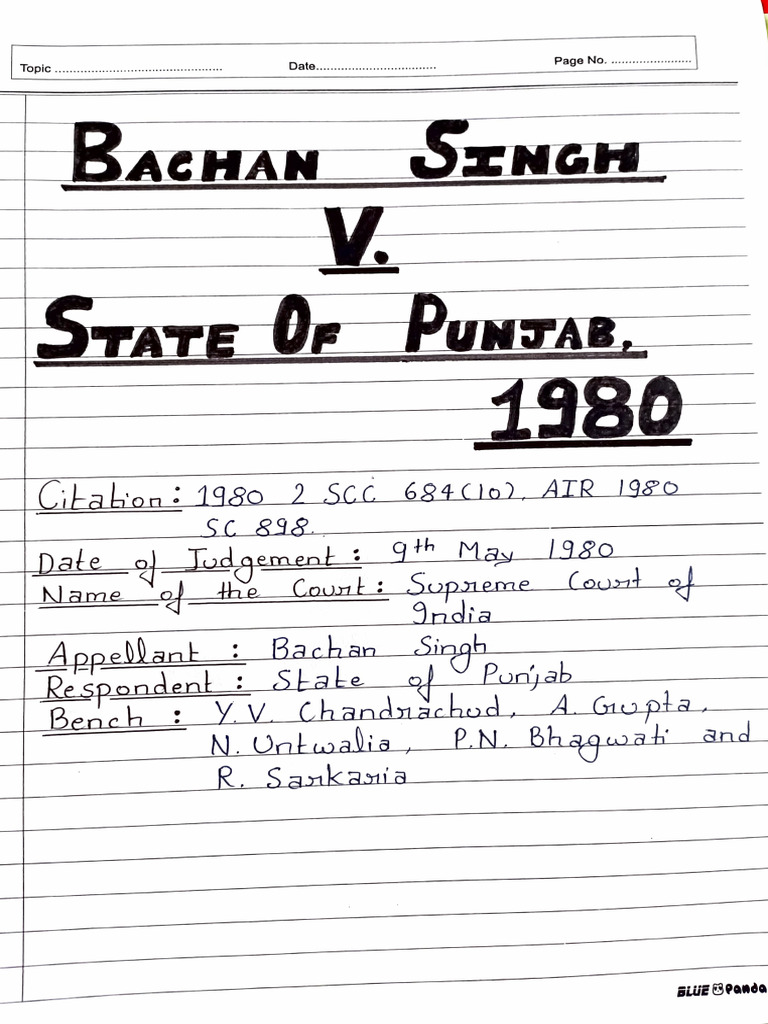 Topic ............................................. Date................................. Page No. ......................
BACHAN SINGH
V.
STATE OF PUNJAB,
1980
Citation : 1980 2 SCC 684(10), AIR 1980
SC 898.
Date of Judgement : 9th May 1980
Name of the Court : Supreme Court of
India
Appellant : Bachan Singh
Respondent : State of Punjab
Bench : Y.V. Chandrachud, A. Gupta,
N. Untwalia, P.N. Bhagwati and
R. Sarkaria
BLUE Panda